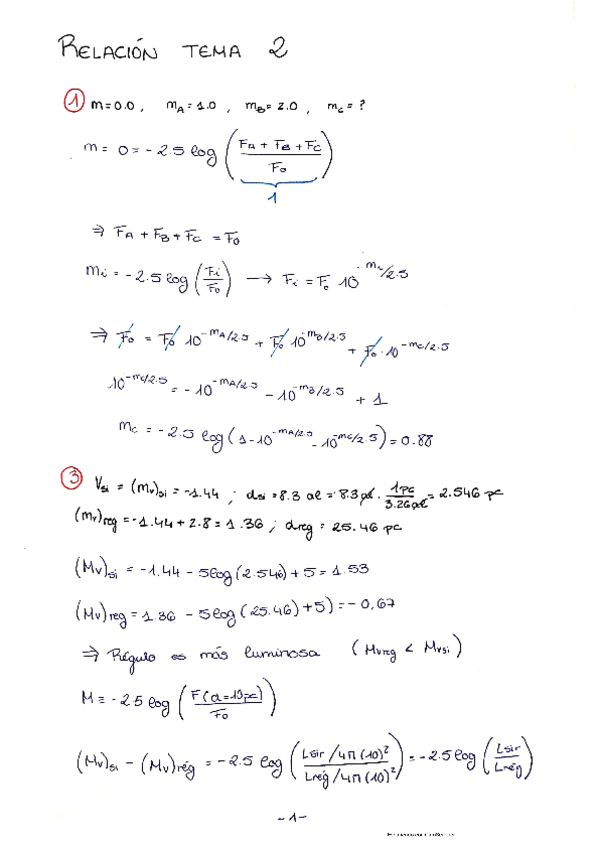 RELACIÓN TEMA 2
① m=0.0, m_A=1.0, m_B=2.0, m_C=?
m= 0=-2.5 log ( (F_A + F_B + F_C) / F_0 )
1
⇒ F_A + F_B + F_C = F_0
m_i = -2.5 log (F_i/F_0) → F_i = F_0 10^(-m_i/2.5)
⇒ F_0 = F_0 10^(-m_A/2.5) + F_0 10^(-m_B/2.5) + F_0·10^(-m_C/2.5)
10^(-m_C/2.5) = -10^(-m_A/2.5) - 10^(-m_B/2.5) + 1
m_C = -2.5 log (1-10^(-m_A/2.5) - 10^(-m_C/2.5)) = 0.88
③ V_si = (m_v)_si = -1.44 ; d_si = 8.3 al = 8.3 al · 1pc/3.26al = 2.546 pc
(m_v)_reg = -1.44 + 2.8 = 1.36 ; d_reg = 25.46 pc
(M_v)_si = -1.44 - 5log(2.546) + 5 = 1.53
(M_v)_reg = 1.36 - 5log(25.46) + 5) = -0,67
⇒ Régulo es más luminosa (M_vreg < M_vsi)
M = -2.5 log ( F(d=10pc) / F_0 )
(M_v)_si - (M_v)_rég = -2.5 log ( (L_sir/4π(10)²) / (L_rég/4π(10)²) ) = -2.5 log ( L_sir / L_rég )
-1-